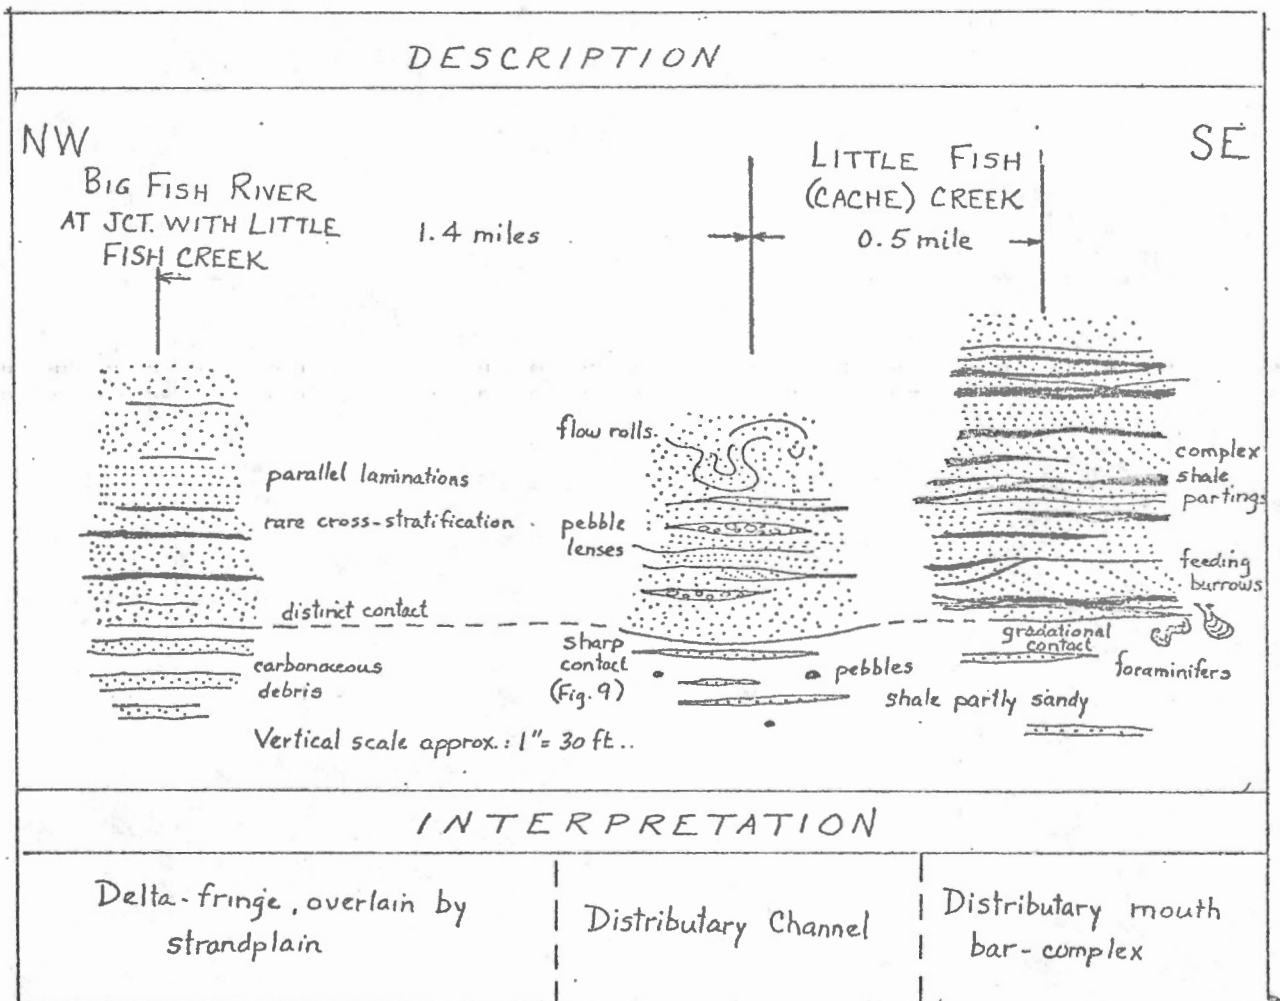 DESCRIPTION
NW
SE
BIG FISH RIVER
AT JCT. WITH LITTLE
FISH CREEK
1.4 miles
LITTLE FISH
(CACHE) CREEK
0.5 mile
parallel laminations
rare cross-stratification
distinct contact
carbonaceous
debris
flow rolls
pebble
lenses
sharp
contact
(Fig. 9)
pebbles
complex
shale
partings
feeding
burrows
gradational
contact
foraminifers
shale partly sandy
Vertical scale approx.: 1"= 30 ft..
INTERPRETATION
Delta-fringe, overlain by
strandplain
Distributary Channel
Distributary mouth
bar-complex